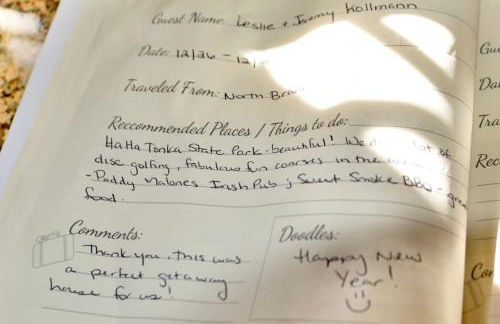 Guest Name: Leslie + Jeremy Kollmann
Date: 12/26 - 12/
Traveled From: North
Reccommended Places / Things to do:
HaHa Tonka State Park - beautiful! We of
disc golfing, fabulous fun courses in the
- Paddy Malones Irish Pub & Sweet Smoke BBQ -
food.
Comments:
Thank you, this was
a perfect getaway
house for us!
Doodles:
Happy New
Year!
Gue
Da
Tra
Rec
Co